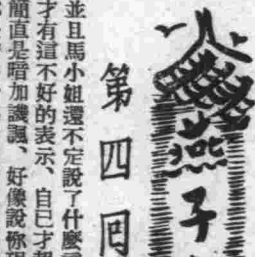 燕子
第四回
並且馬小姐還不定說了什麼
才有這不好的表示、自己才
簡直是暗加譏諷、好像說你